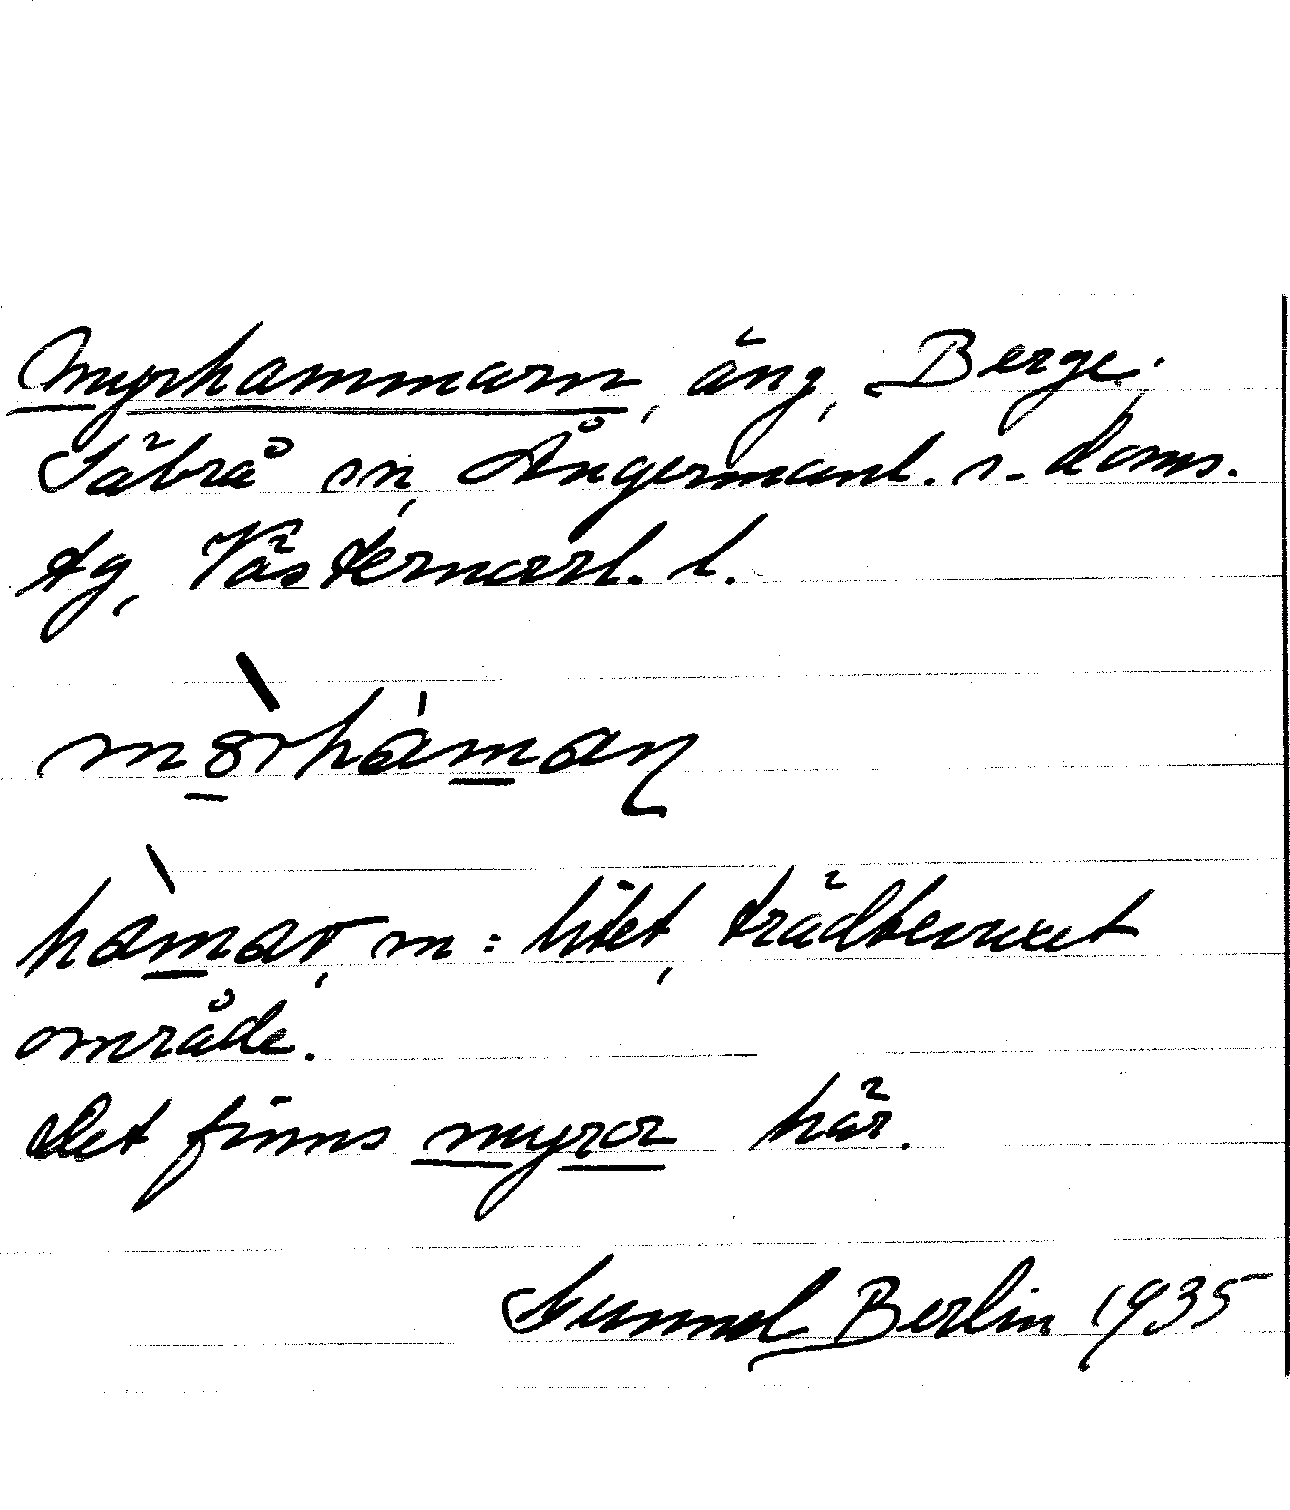 Myrhammarn, äng, Berge.
Säbrå sn, Ångermanl. s. doms.
tg, Västernorrl. l.
mörhaman
hamar, m: litet, trädbevuxet
område.
Det finns myror här.
Gunnel Berlin 1935